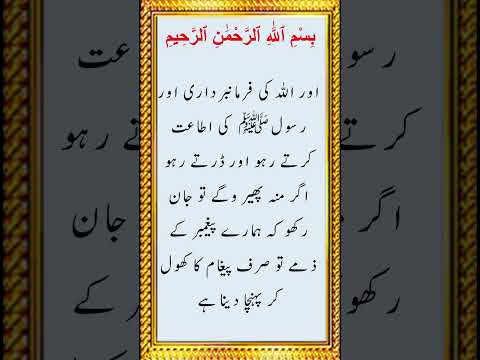 بِسْمِ ٱللَّٰهِ ٱلرَّحْمَٰنِ ٱلرَّحِيمِ
اور اللہ کی فرمانبرداری اور
رسولﷺ کی اطاعت
کرتے رہو اور ڈرتے رہو
اگر منہ پھیر وگے تو جان
رکھو کہ ہمارے پیغمبر کے
ذمے تو صرف پیغام کا کھول
کر پہنچا دینا ہے